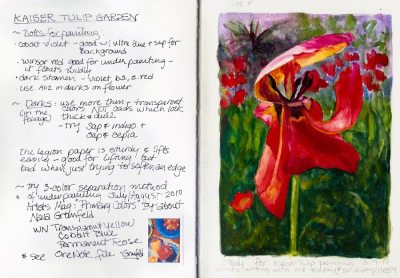 KAISER TULIP GARDEN
~ Notes for painting
cobalt violet - good w/ ultra blue & sap for
background
~ winsor red good for under painting -
it floats wildly
~ dark stamen - violet, b.s., a. red
use Aliz in darks on flower
~ Darks: use more thin & transparent
(in the foliage) colors NOT cads which look
thick & dull
- try sap & indigo &
sap & sepia
The legion paper is sturdy & lifts
easily - good for lifting! but
bad when just trying to soften an edge
~ try 3-color separation method
of underpainting July/August 2010
Artists Mag: "Primary Colors" by about
Nava Grünfeld
WN Transparent Yellow
Cobalt Blue
Permanent Rose
* see OneNote file
for Kaiser Tulip painting